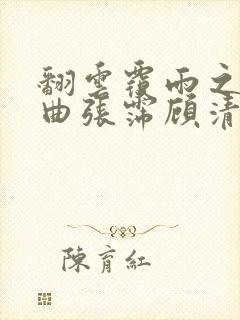 翻雲覆雨之
曲張霈顧清
陳育紅